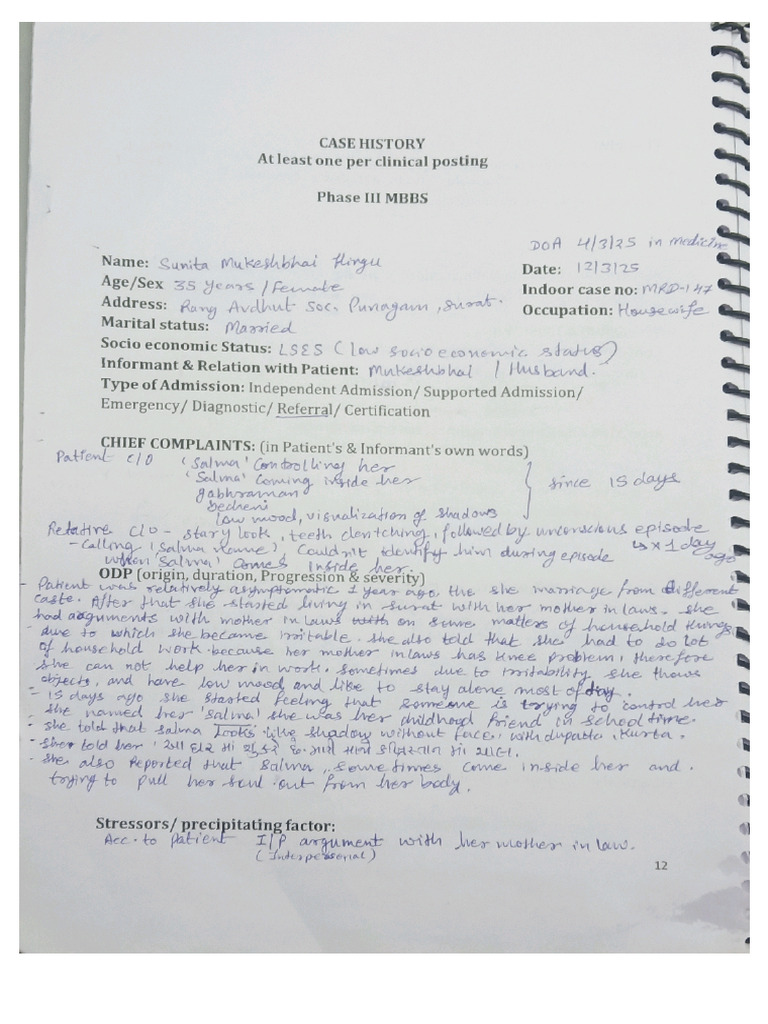 CASE HISTORY
At least one per clinical posting
Phase III MBBS
DOA 4/3/25 in medicine
Name: Sunita Mukeshbhai Hingu
Date: 12/3/25
Age/Sex 35 years / Female
Indoor case no: MRD-147
Address: Rang Avdhut Soc. Punagam, Surat.
Occupation: Housewife
Marital status: Married
Socio economic Status: LSES (low socioeconomic status)
Informant & Relation with Patient: Mukeshbhai / Husband.
Type of Admission: Independent Admission/ Supported Admission/
Emergency/ Diagnostic/ Referral/ Certification
CHIEF COMPLAINTS: (in Patient's & Informant's own words)
Patient c/o 'Salma' Controlling her
'Salma' Coming inside her
gabhraman
becheni
low mood, visualization of shadows
since 15 days
Relative c/o - stary look, teeth clentching, followed by unconscious episode
- Calling 'Salma' name, Couldn't identify him during episode
↳ x 1 day ago
when 'Salma' Comes Inside her.
ODP (origin, duration, Progression & severity)
- Patient was relatively asymptomatic 1 year ago, the she marriage from different
caste. After that she started living in surat with her mother in laws. she
had arguments with mother in laws with on some matters of household things
due to which she became irritable. she also told that she had to do lot
of household work because her mother in laws has knee problem, therefore
she can not help her in work. sometimes due to irritability she thows
objects, and have low mood and like to stay alone most of day.
- 15 days ago she started feeling that someone is trying to control her
- she named her 'Salma' she was her childhood friend in school time.
- she told that Salma Looks like shadow without face, with dupatta, Kurta.
- she told her
- she also Reported that Salma, sometimes come inside her and
trying to pull her soul out from her body.
Stressors/ precipitating factor:
Acc. to patient I/P argument with her mother in law.
(Interpersonal)
12